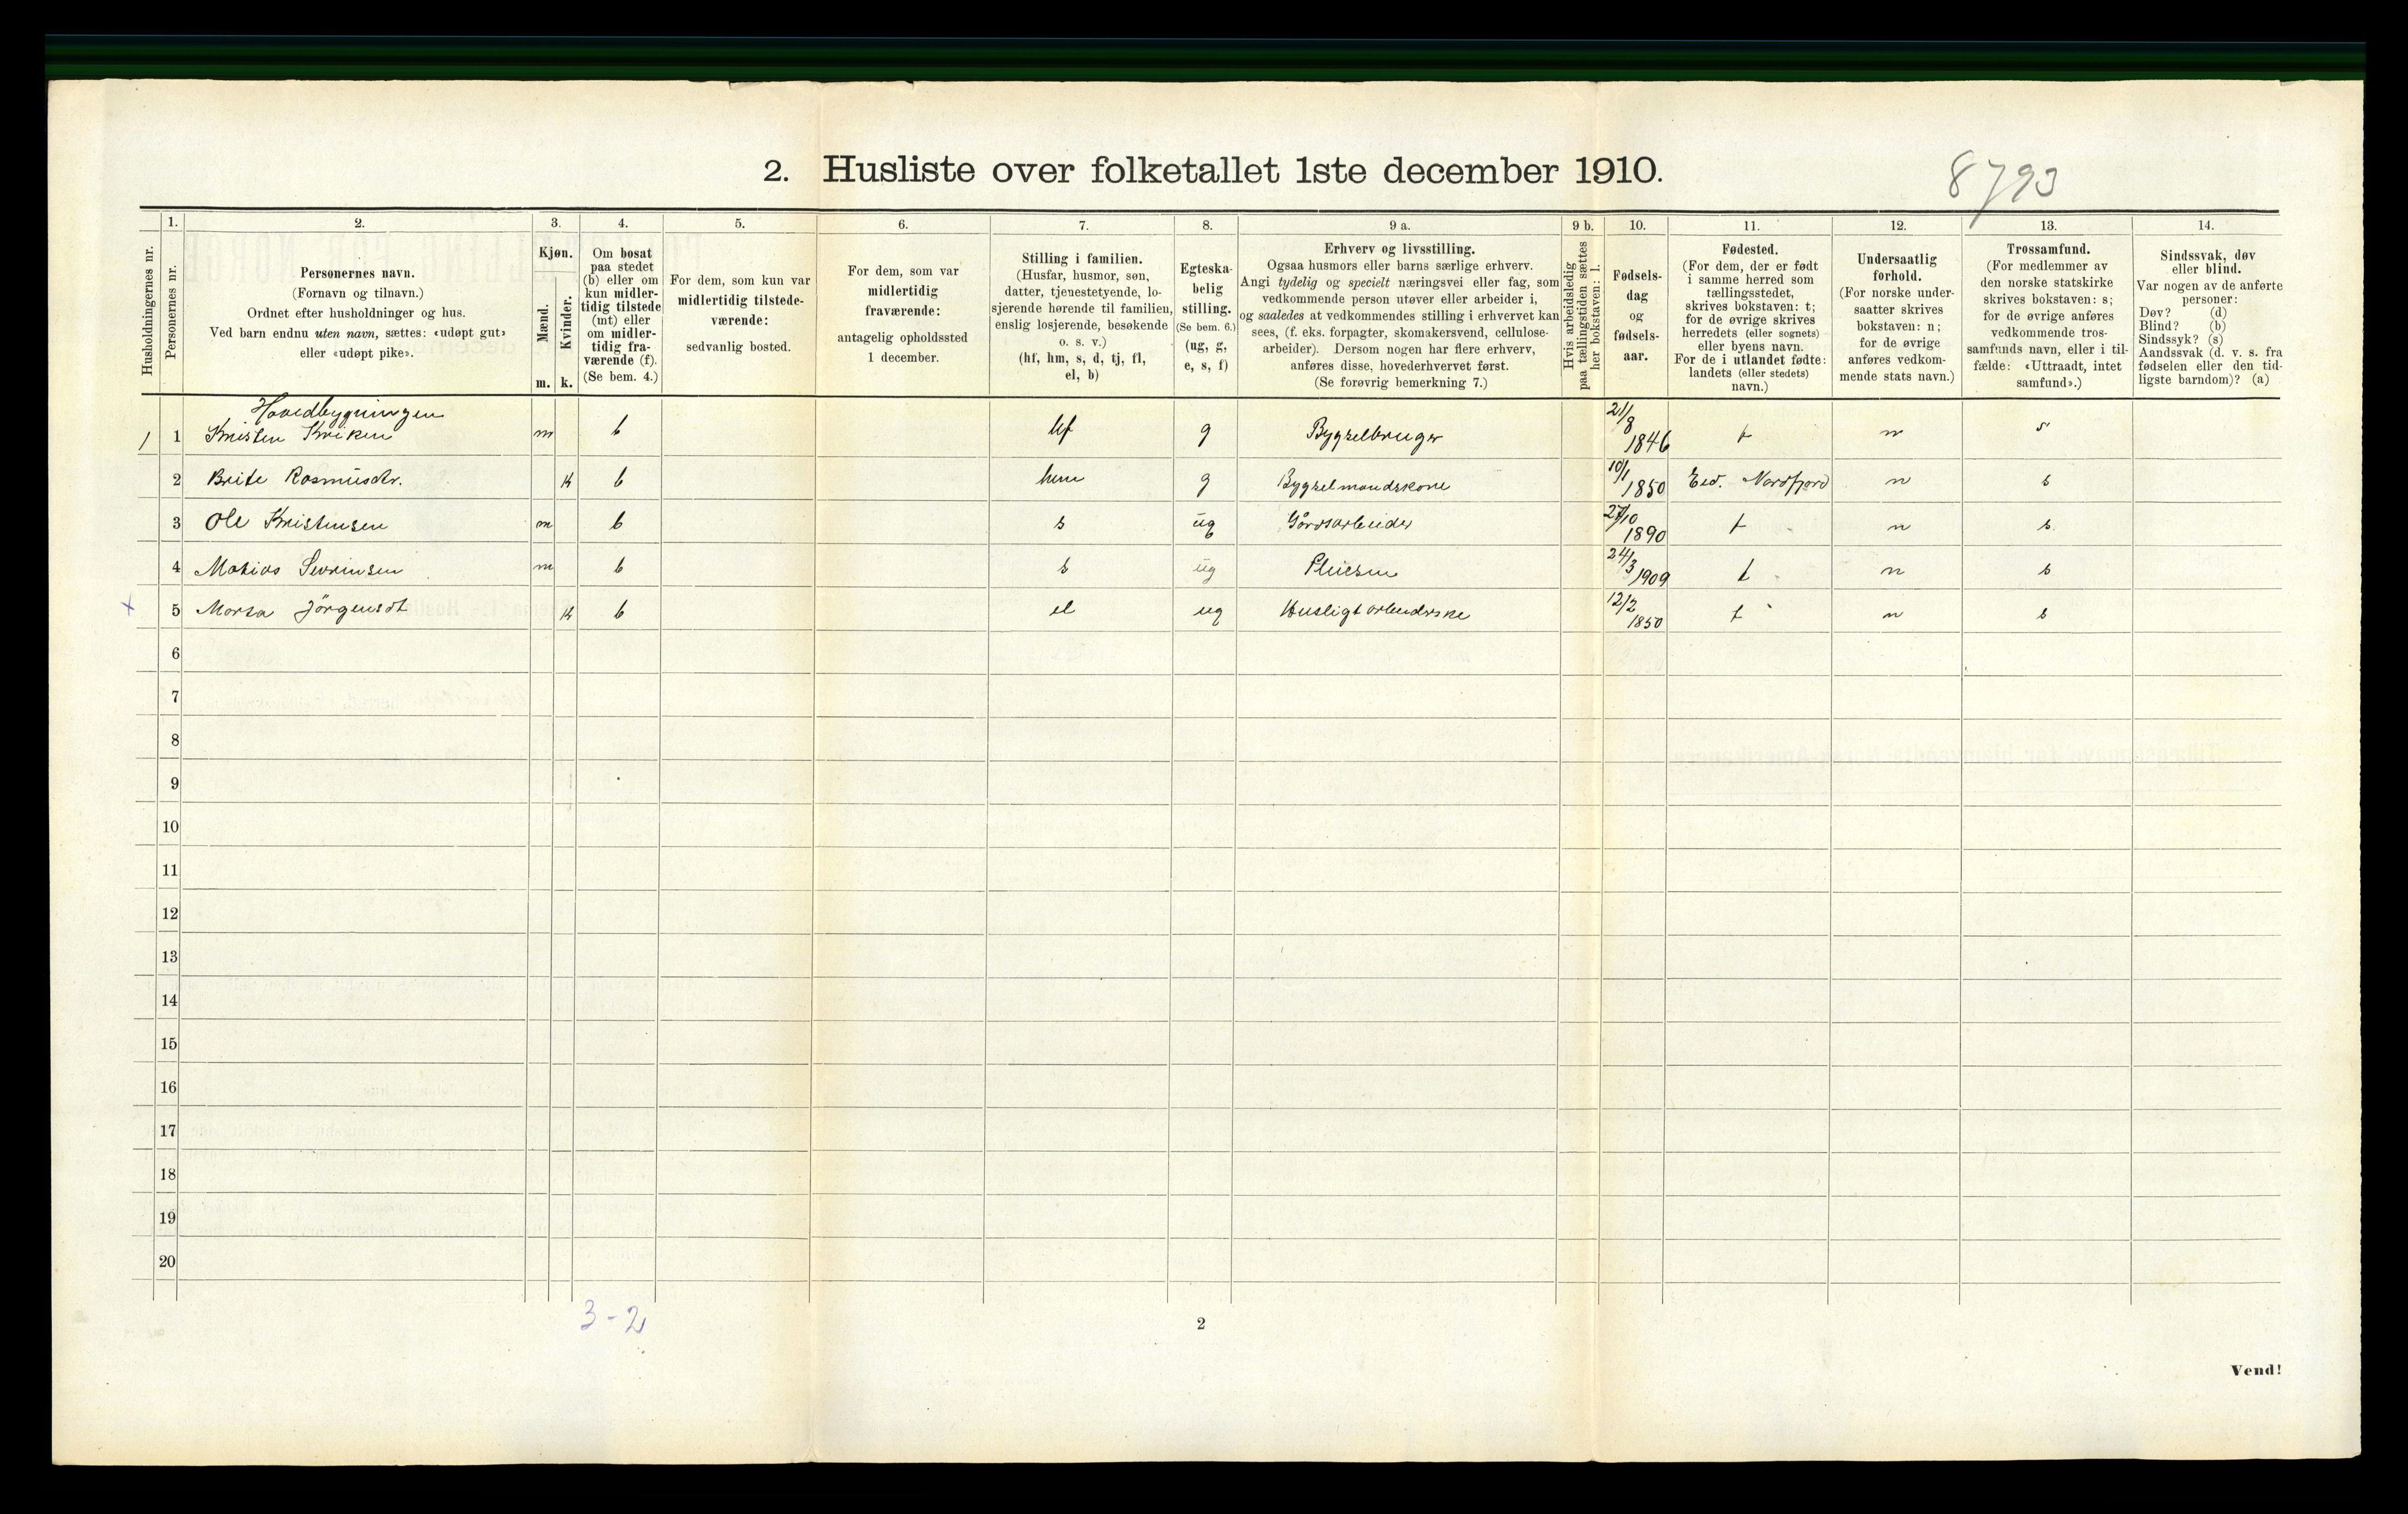 2. Husliste over folketallet 1ste december 1910.
8793
Husholdningernes nr.
1.
Personernes nr.
2.
Personernes navn.
(Fornavn og tilnavn.)
Ordnet efter husholdninger og hus.
Ved barn endnu uten navn, sættes: «udøpt gut»
eller «udøpt pike».
3.
Kjøn.
Mænd.
Kvinder.
m. k.
4.
Om bosat
paa stedet
(b) eller om
kun midler-
tidig tilstede
(mt) eller
om midler-
tidig fra-
værende (f).
(Se bem. 4.)
5.
For dem, som kun var
midlertidig tilstede-
værende:
sedvanlig bosted.
6.
For dem, som var
midlertidig
fraværende:
antagelig opholdssted
1 december.
7.
Stilling i familien.
(Husfar, husmor, søn,
datter, tjenestetyende, lo-
sjerende hørende til familien,
enslig losjerende, besøkende
o. s. v.)
(hf, hm, s, d, tj, fl,
el, b)
8.
Egteska-
belig
stilling.
(Se bem. 6.)
(ug, g,
e, s, f)
9 a.
Erhverv og livsstilling.
Ogsaa husmors eller barns særlige erhverv.
Angi tydelig og specielt næringsvei eller fag, som
vedkommende person utøver eller arbeider i,
og saaledes at vedkommendes stilling i erhvervet kan
sees, (f. eks. forpagter, skomakersvend, cellulose-
arbeider). Dersom nogen har flere erhverv,
anføres disse, hovederhvervet først.
(Se forøvrig bemerkning 7.)
9 b.
Hvis arbeidsledig
paa tællingstiden sættes
her bokstaven: l.
10.
Fødsels-
dag
og
fødsels-
aar.
11.
Fødested.
(For dem, der er født
i samme herred som
tællingsstedet,
skrives bokstaven: t;
for de øvrige skrives
herredets (eller sognets)
eller byens navn.
For de i utlandet fødte:
landets (eller stedets)
navn.)
12.
Undersaatlig
forhold.
(For norske under-
saatter skrives
bokstaven: n;
for de øvrige
anføres vedkom-
mende stats navn.)
13.
Trossamfund.
(For medlemmer av
den norske statskirke
skrives bokstaven: s;
for de øvrige anføres
vedkommende tros-
samfunds navn, eller i til-
fælde: «Uttraadt, intet
samfund».)
14.
Sindssvak, døv
eller blind.
Var nogen av de anførte
personer:
Døv? (d)
Blind? (b)
Sindssyk? (s)
Aandssvak (d. v. s. fra
fødselen eller den tid-
ligste barndom)? (a)
Hovedbygningen
1 1 Kristen Kriken m b hf g Bygselbruger 21/8 1846 t n s
2 Brite Rasmusdtr. k b hm g Bygselmandskone 10/1 1850 Eid. Nordfjord n s
3 Ole Kristensen m b s ug Gårdsarbeider 27/10 1890 t n s.
4 Matias Sevrinsen m b s ug 24/3 1909 t n s
x 5 Marta Jörgensdt k b el ug Husligt arbeiderske 12/2 1850 t n s
6
7
8
9
10
11
12
13
14
15
16
17
18
19
20
3-2
2
Vend!